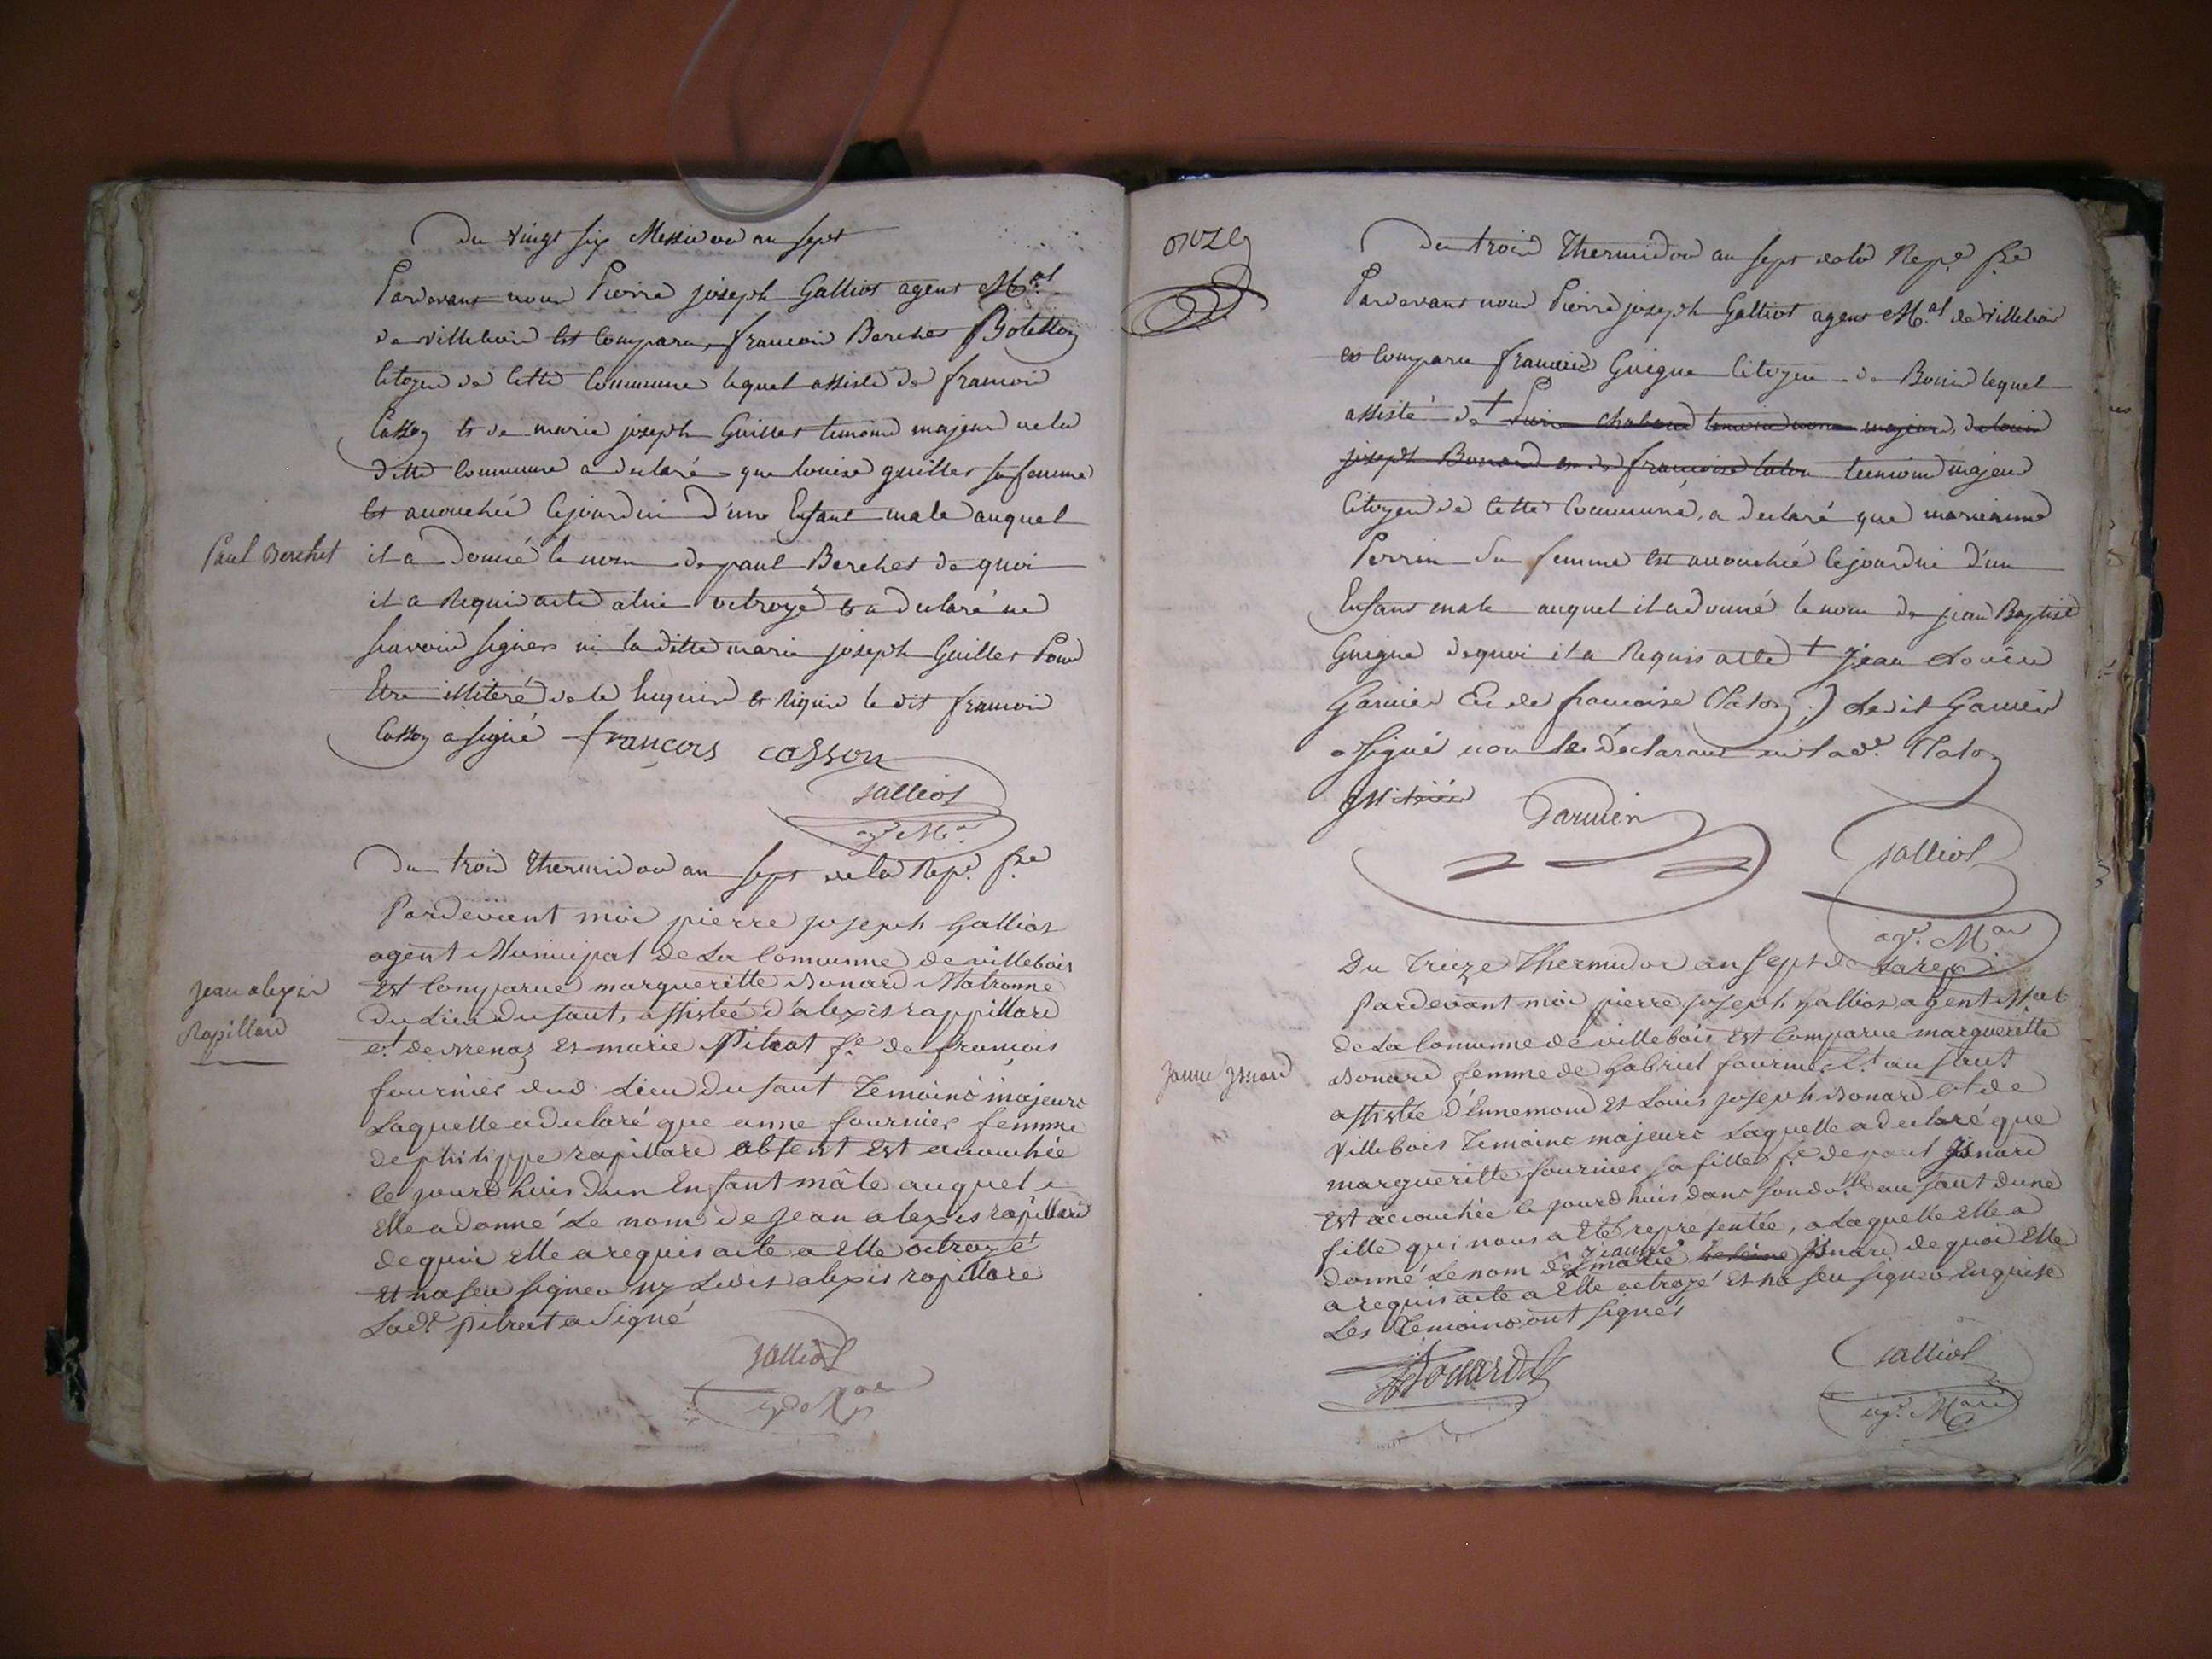 Du vingt six Messidor an sept
Pardevant nous Pierre joseph Galliot agent M.al
de villebois est comparu francois Berchet
citoyen de cette commune lequel assisté de francois
Casson et de marie joseph Guillet temoins majeurs de la
ditte commune a declaré que louise guillet sa femme
est accouchée cejourdui d'une Enfant male auquel
Paul Berchet
il a donné le nom de paul Berchet de quoi
il a Requis acte a lui octroyé et a declaré ne
scavoir signer ni la ditte marie joseph Guillet Pour
Etre illiteré de le Enquis et Requis le dit francois
Casson a signé françois casson
Galliot
agt M.al
Du trois Thermidor an sept de la Rep.e f.se
Pardevant moi pierre joseph Galliot
agent Municipal de La Commune de villebois
Jean alexis
Rapillard
Est Comparue margueritte Bonard Matronne
Du Lieu du saut, assistée d'alexis rappillard
et marie Pitrat f.e de francois
fournier dud. Lieu Du saut Temoins majeurs
Laquelle a declaré que anne fournier femme
de philippe rapillard absent Est accouchée
le jourd'huis d'un Enfant mâle auquel
Elle a donné Le nom de Jean alexis rapillard
de quoi Elle a requis acte a Elle octroyé
Et na seu signer ny Ledit alexis rapillard
Lad.e pitrat a signé
Galliot
onze
Du trois Thermidor an sept de la Rep.e f.se
Pardevant nous Pierre joseph Galliot agent M.al de villebois
est comparu francois Guigue citoyen de lequel
assisté de + chabaud majeurs, de louis
joseph Bonard et de francoise taton temoins majeurs
Citoyens de cette Commune, a declaré que marianne
Perrin sa femme est accouchée cejourdui d'un
Enfant male auquel il a donné le nom de jean Baptiste
Guigue dequoi il a Requis acte + Jean Louis
Garnier Et de francoise Taton) Ledit Garnier
a signé non le déclarant ni lad.e Taton
Garnier
Galliot
agt. M.al
Du Treize Thermidor an sept de La rep.
Pardevant moi pierre joseph Galliot agent M.al
de La Commune de villebois Est Comparue margueritte
Janne Jsnard
Bonard femme de Gabriel fournier C.t au saut
assistée d'Ennemond Et Louis joseph Bonard C.t de
villebois Temoins majeurs Laquelle a declaré que
margueritte fournier sa fille f.e de paul Jsnard
Est accouchée le jourd'huis dans son do.lle au saut dune
fille qui nous a été representée, a Laquelle Elle a
donné Le nom de jeanne marie Jsnard de quoi Elle
a requis acte a Elle octroyé Et na seu signer Enquise
Les Temoins ont signés
Bonard
Galliot
agt. M.al